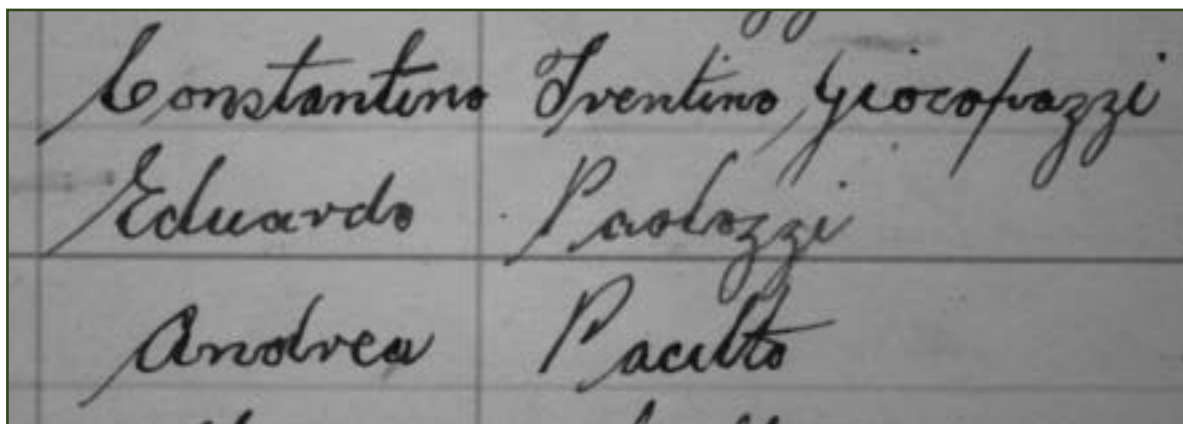 Constantino Trentino Giocopazzi
Eduardo Paolozzi
Andrea Pacitto